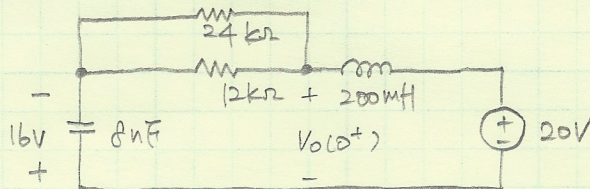 24 kΩ
12kΩ + 200mH
−
16V 8nF Vo(0⁺) + − 20V
+ −